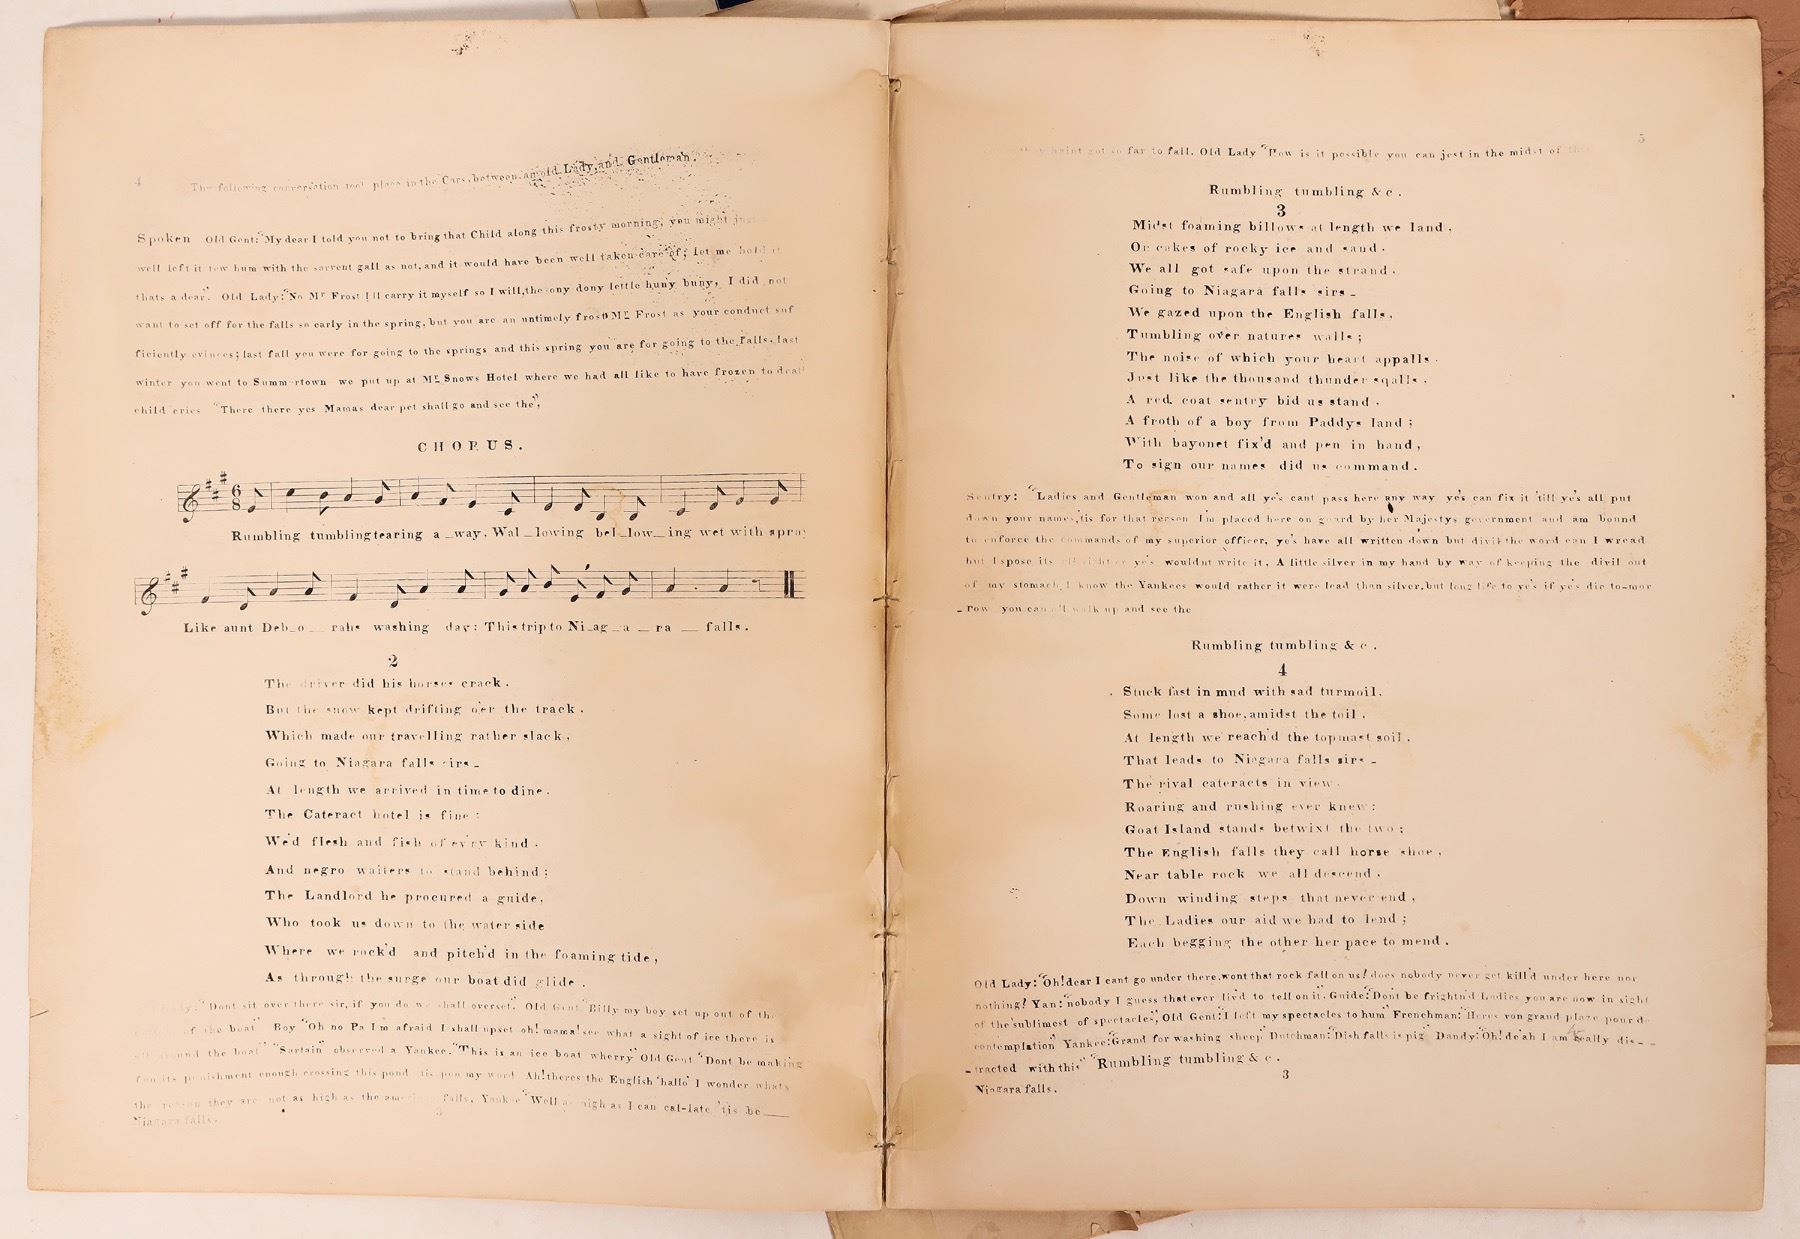 4
The following conversation took place in the Cars, between an old Lady, and Gentleman.
Spoken Old Gent: "My dear I told you not to bring that Child along this frosty morning, you might just
well left it tew hum with the sarvent gall as not, and it would have been well taken care of; let me hold it
thats a dear." Old Lady: "No Mr Frost I'll carry it myself so I will, the ony dony lettle huny buny, I did not
want to set off for the falls so early in the spring, but you are an untimely frost Mr Frost as your conduct suf
ficiently evinces; last fall you were for going to the springs and this spring you are for going to the falls, last
winter you went to Summertown we put up at Mr Snows Hotel where we had all like to have frozen to death
child cries "There there yes Mamas dear pet shall go and see the",
CHORUS.
6
8
Rumbling tumbling tearing a_way, Wal_lowing bel_low_ing wet with spray
Like aunt Deb_o_rahs washing day: This trip to Ni_ag_a_ra_falls.
2
The driver did his horses crack.
But the snow kept drifting o'er the track.
Which made our travelling rather slack,
Going to Niagara falls sirs_
At length we arrived in time to dine.
The Cateract hotel is fine:
We'd flesh and fish of ev'ry kind.
And negro waiters to stand behind;
The Landlord he procured a guide,
Who took us down to the water side
Where we rock'd and pitch'd in the foaming tide,
As through the surge our boat did glide.
"Dont sit over there sir, if you do we shall overset." Old Gent "Billy my boy set up out of the
of the boat" Boy "Oh no Pa I'm afraid I shall upset oh! mama! see what a sight of ice there is
all around the boat" "Sartain" observed a Yankee. "This is an ice boat wherry" Old Gent "Dont be making
fun its punishment enough crossing this pond tis pon my word Ah! theres the English 'hallo' I wonder whats
the reason they are not as high as the american falls, Yankee "Well as nigh as I can cal-late, 'tis be___
Niagara falls.
3
5
haint got so far to fall. Old Lady "How is it possible you can jest in the midst of this
Rumbling tumbling &c.
3
Midst foaming billows at length we land,
On cakes of rocky ice and sand.
We all got safe upon the strand.
Going to Niagara falls sirs_
We gazed upon the English falls,
Tumbling over natures walls;
The noise of which your heart appalls.
Just like the thousand thunder sqalls,
A red coat sentry bid us stand,
A froth of a boy from Paddys land;
With bayonet fix'd and pen in hand,
To sign our names did us command.
Sentry: "Ladies and Gentleman won and all ye's cant pass here any way ye's can fix it 'till ye's all put
down your names, tis for that reason I'm placed here on guard by her Majestys government and am bound
to enforce the commands of my superior officer, ye's have all written down but divil the word can I wread
but I spose its all right or ye's wouldnt write it, A little silver in my hand by way of keeping the divil out
of my stomach, I know the Yankees would rather it were lead than silver, but long life to ye's if ye's die to-mor
_row you can all walk up and see the
Rumbling tumbling &c.
4
Stuck fast in mud with sad turmoil,
Some lost a shoe, amidst the toil,
At length we reach'd the topmast soil.
That leads to Niagara falls sirs_
The rival cateracts in view.
Roaring and rushing ever knew:
Goat Island stands betwixt the two;
The English falls they call horse shoe,
Near table rock we all descend,
Down winding steps that never end,
The Ladies our aid we had to lend;
Each begging the other her pace to mend.
Old Lady: "Oh! dear I cant go under there, wont that rock fall on us! does nobody never get kill'd under here nor
nothing! Yan: "nobody I guess that ever liv'd to tell on it". Guide: "Dont be frightn'd Ladies you are now in sight
of the sublimest of spectacles", Old Gent: "I left my spectacles to hum" Frenchman: "Heres von grand plaze pour de
contemplation" Yankee: "Grand for washing sheep" Dutchman: "Dish falls is pig" Dandy: "Oh! de'ah I am really dis_
_tracted with this" "Rumbling tumbling &c.
3
Niagara falls.